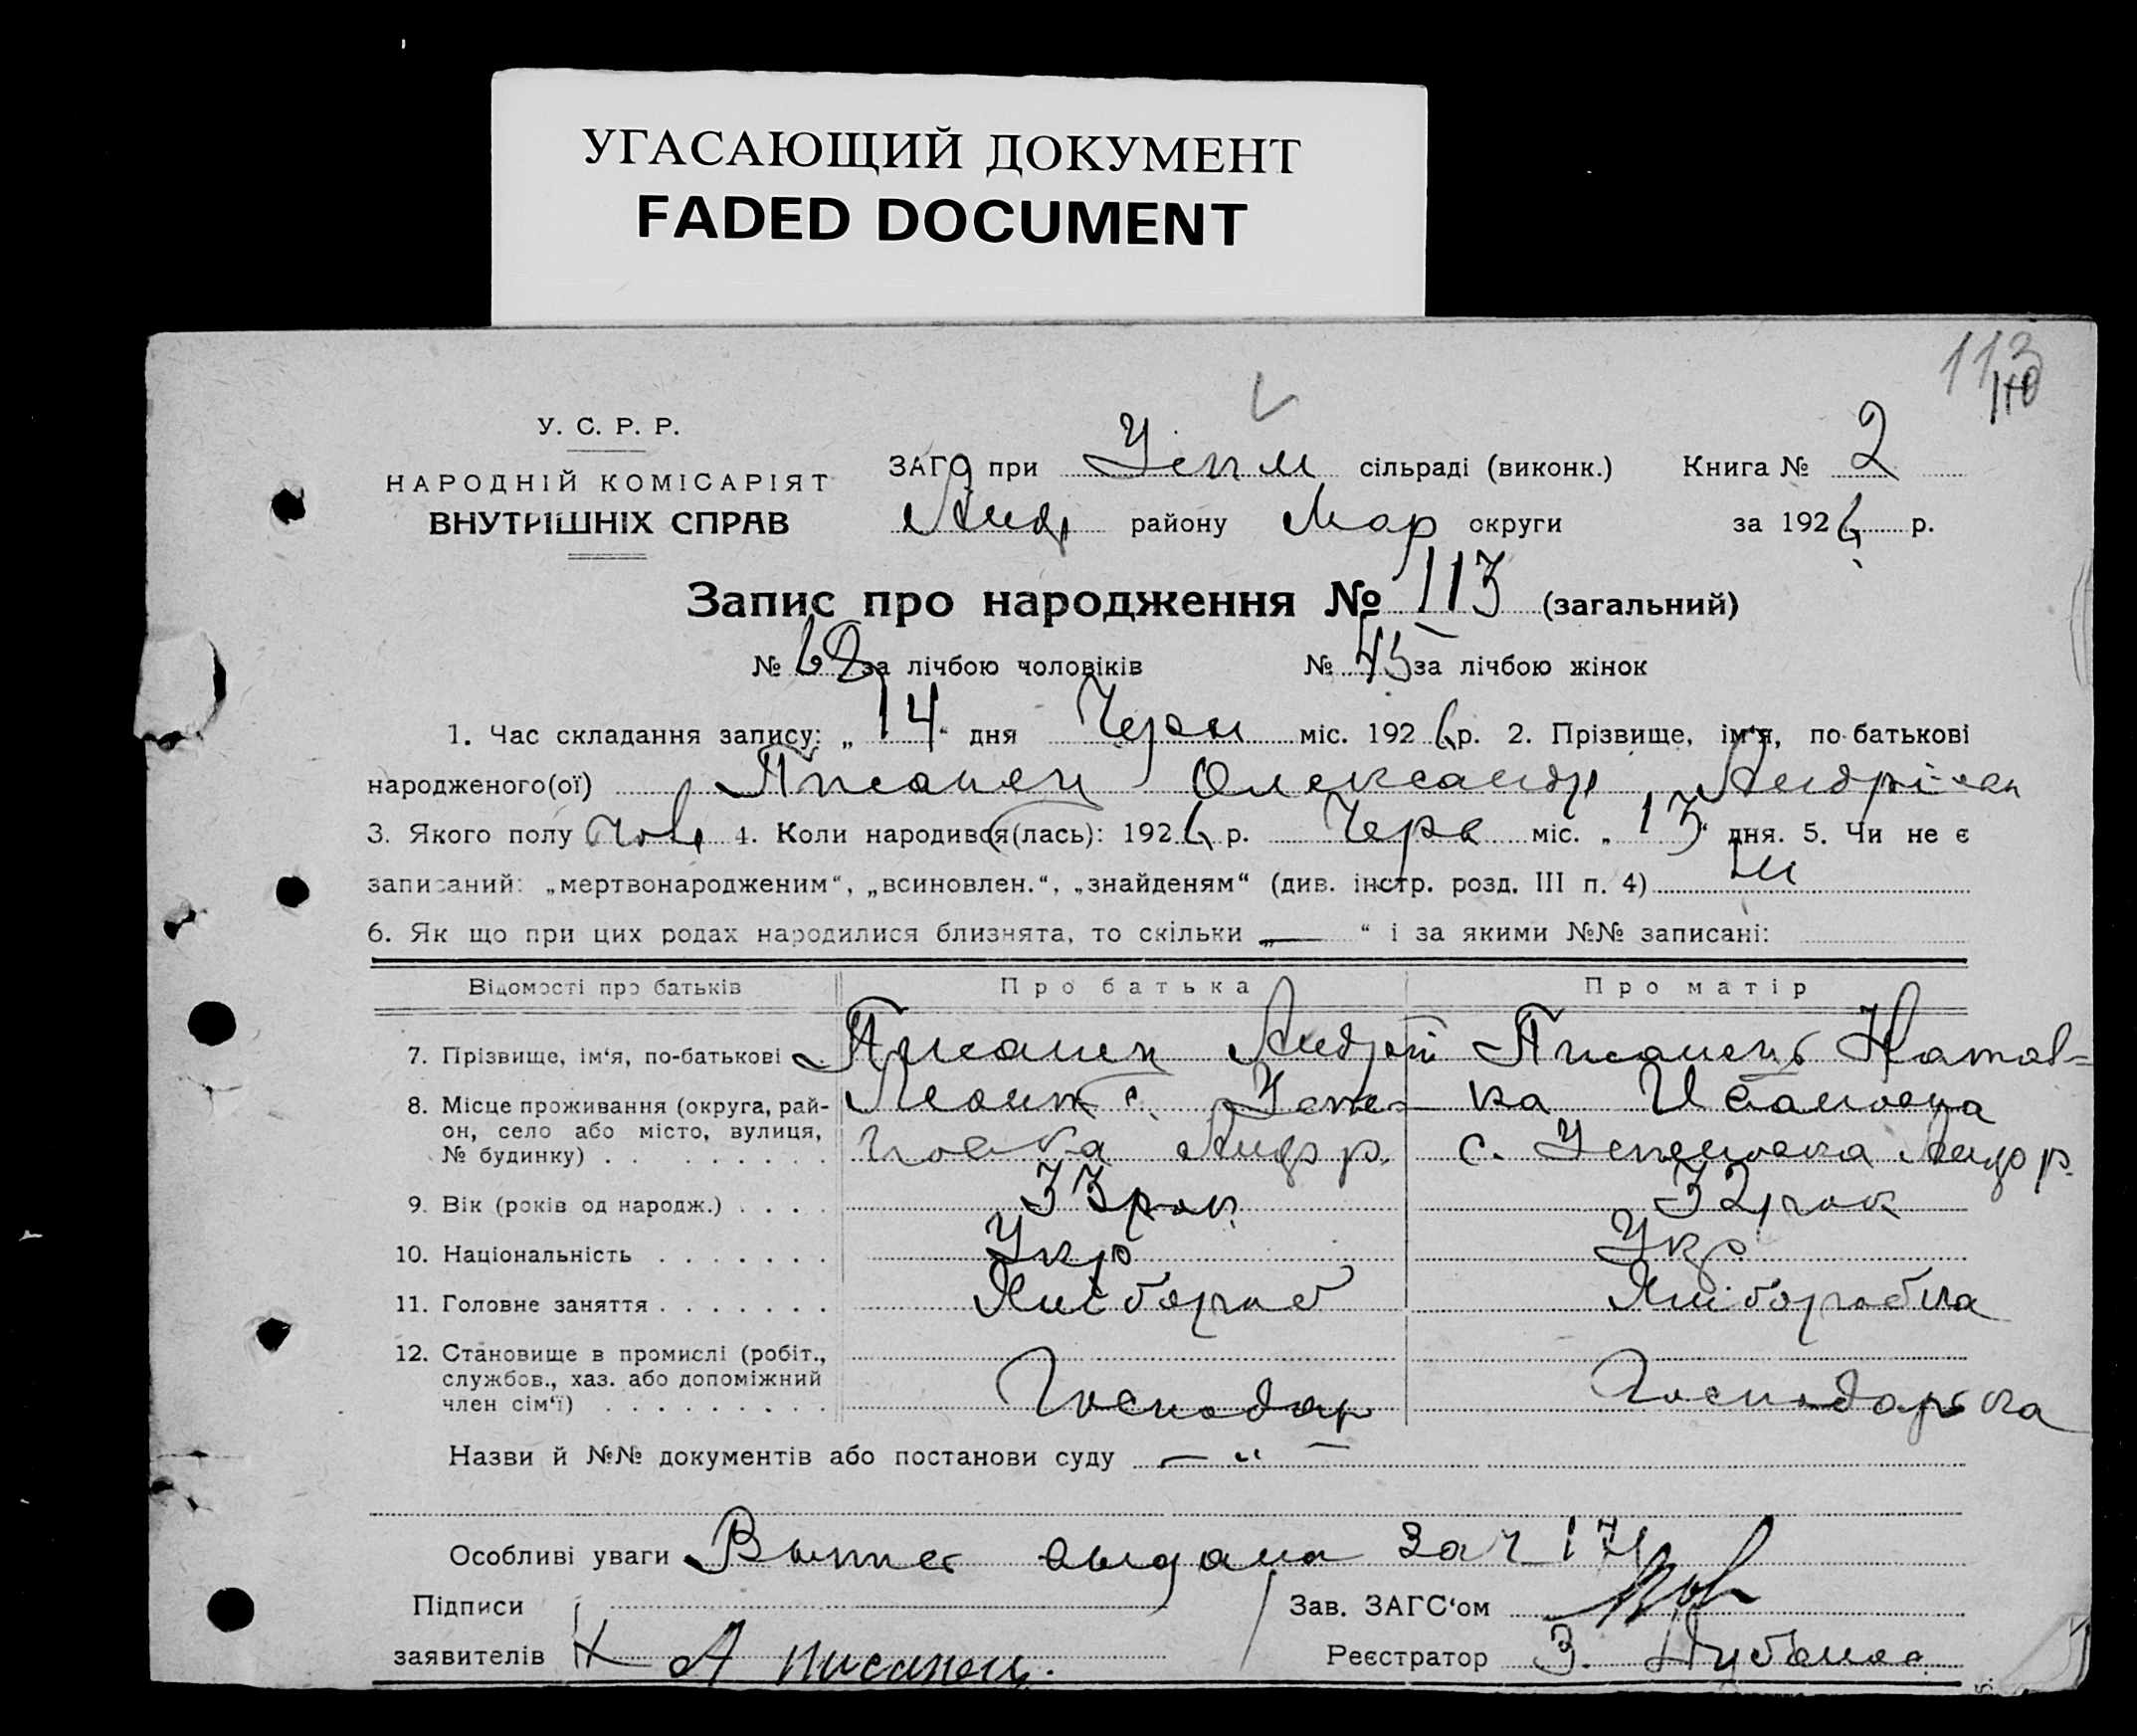 УГАСАЮЩИЙ ДОКУМЕНТ
FADED DOCUMENT
113
110
У. С. Р. Р.
НАРОДНІЙ КОМІСАРІЯТ
ВНУТРІШНІХ СПРАВ
ЗАГС при Усп м сільраді (виконк.) Книга № 2
Анд району Мар округи за 1926 р.
Запис про народження № 113 (загальний)
№ 68 за лічбою чоловіків № 45 за лічбою жінок
1. Час складання запису: „14“ дня Черв міс. 1926 р. 2. Прізвище, ім‘я, по-батькові
народженого(ої) Писанец Олександр Андрі
3. Якого полу чол 4. Коли народився(лась): 1926 р. Черв міс. „13“ дня. 5. Чи не є
записаний: „мертвонародженим“, „всиновлен.“, „знайденям“ (див. інстр. розд. III п. 4) ні
6. Як що при цих родах народилися близнята, то скільки „—“ і за якими №№ записані:
Відомості про батьків Про батька Про матір
7. Прізвище, ім‘я, по-батькові Писанец Андрій Писанець Натал=
8. Місце проживання (округа, рай- Леонт с. Успе- ка Ивановна
он, село або місто, вулиця,
№ будинку) новка Андр р. с. Успеновка Андр р.
9. Вік (років од народж.) 33 рок 32 рок
10. Національність Укр Укр
11. Головне заняття Хлібороб Хліборобка
12. Становище в промислі (робіт.,
службов., хаз. або допоміжний
член сім‘ї) Господар Господарька
Назви й №№ документів або постанови суду — „ —
Особливі уваги выдана за ч 174
Підписи Зав. ЗАГС‘ом
заявителів А писанец. Реєстратор З.